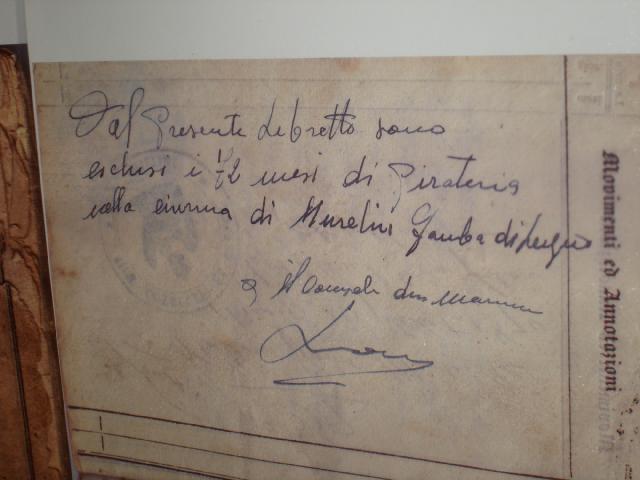 Dal Presente Libretto sono
esclusi i 1/2 mesi di Pirateria
nella ciurma di Muselin Gamba di Legno
il Console
Movimenti ed Annotazioni